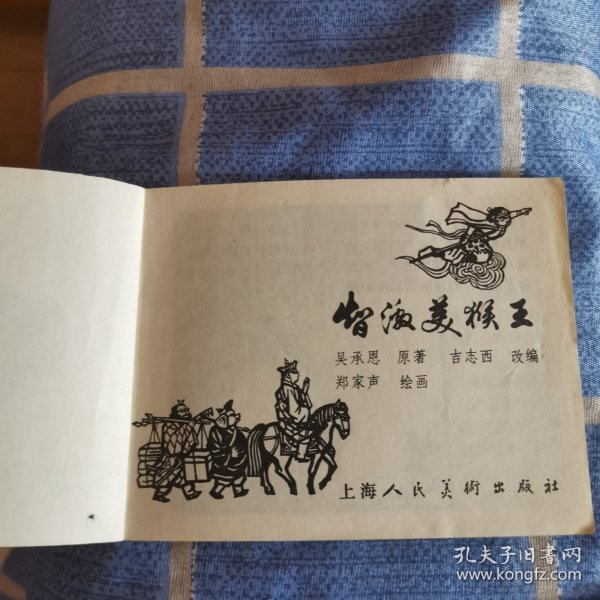 智激美猴王
吴承恩 原著 吉志西 改编
郑家声 绘画
上海人民美術出版社
孔夫子旧书网
www.kongfz.com